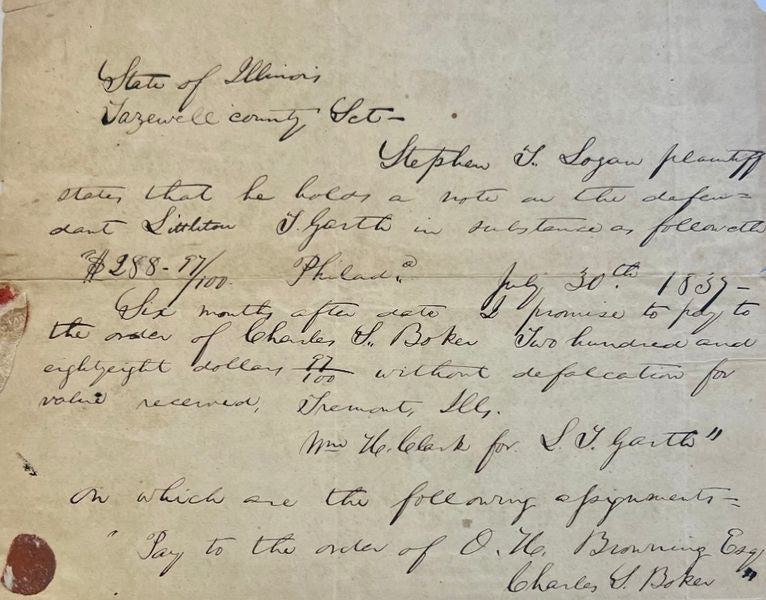 State of Illinois
Tazewell county Sct—
Stephen T. Logan plaintiff
states that he holds a note on the defen=
dant Littleton T. Garth in substance as followeth
"$288-97/100. Philada. July 30th. 1837-
Six months after date I promise to pay to
the order of Charles S. Boker Two hundred and
eightyeight dollars 97/100 without defalcation for
value received, Tremont, Ills.
Wm H. Clark for L. T. Garth"
on which are the following assignments=
"Pay to the order of O. H. Browning Esq,
Charles S. Boker "